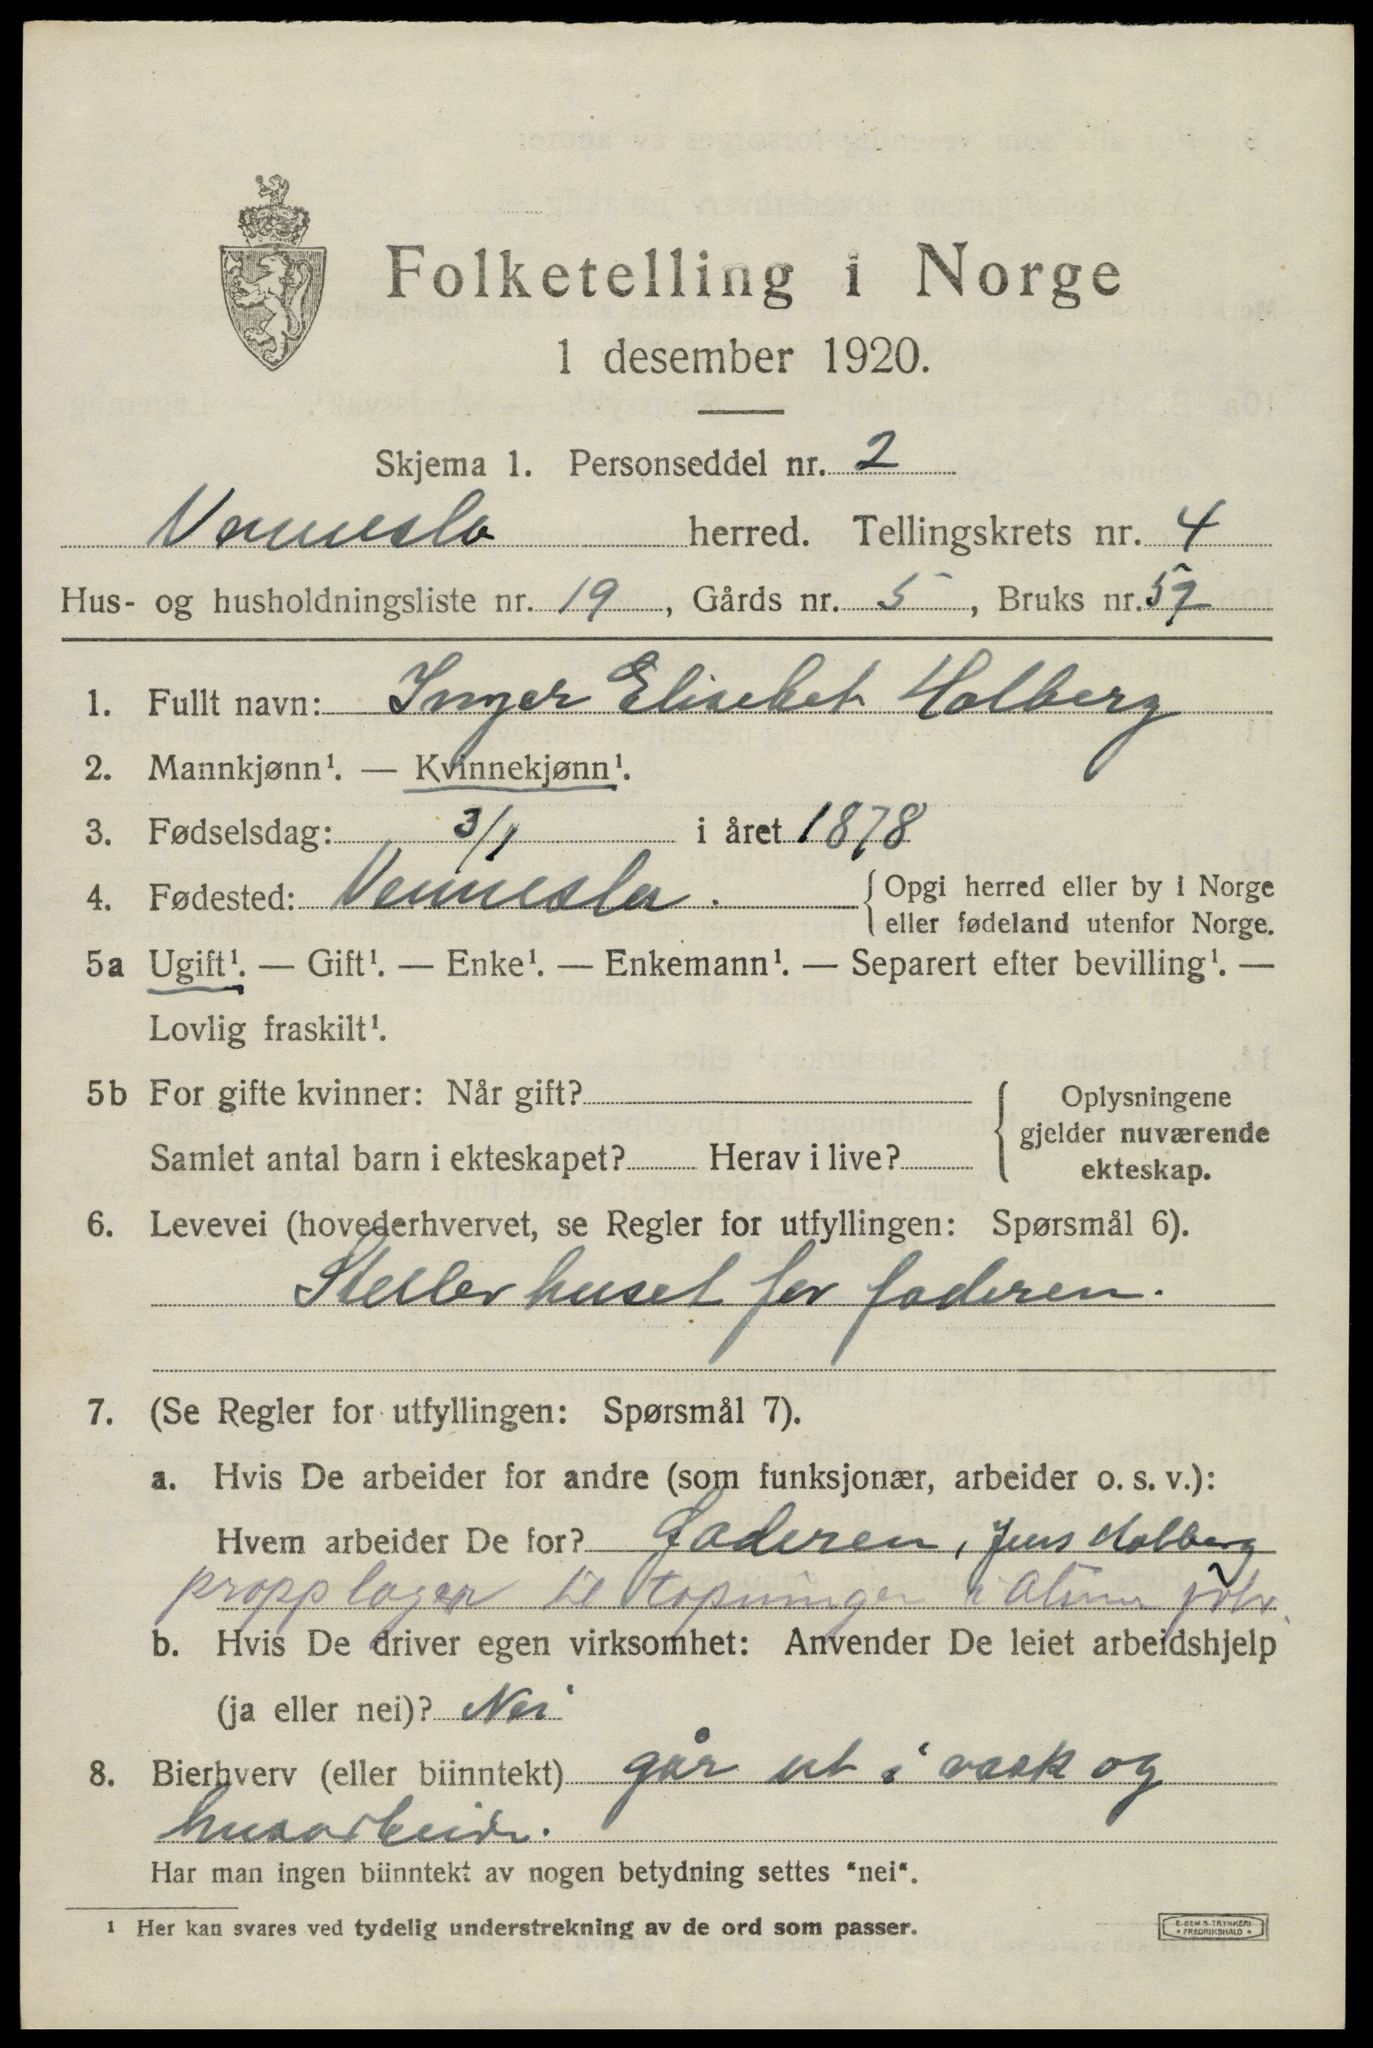 Folketelling i Norge
1 desember 1920.
Skjema 1. Personseddel nr. 2
Vennesla herred. Tellingskrets nr. 4
Hus- og husholdningsliste nr. 19, Gårds nr. 5, Bruks nr. 57
1. Fullt navn: Inger Elisebet Holberg
2. Mannkjønn¹. — Kvinnekjønn¹.
3. Fødselsdag: 3/1 i året 1878
4. Fødested: Vennesla. Opgi herred eller by i Norge
eller fødeland utenfor Norge.
5a Ugift¹. — Gift¹. — Enke¹. — Enkemann¹. — Separert efter bevilling¹. —
Lovlig fraskilt¹.
5b For gifte kvinner: Når gift? Oplysningene
gjelder nuværende
Samlet antal barn i ekteskapet? Herav i live? ekteskap.
6. Levevei (hovederhvervet, se Regler for utfyllingen: Spørsmål 6).
Steller huset for faderen.
7. (Se Regler for utfyllingen: Spørsmål 7).
a. Hvis De arbeider for andre (som funksjonær, arbeider o. s. v.):
Hvem arbeider De for? Faderen, Jens Holberg
propplager til tapningen i
b. Hvis De driver egen virksomhet: Anvender De leiet arbeidshjelp
(ja eller nei)? Nei
8. Bierhverv (eller biinntekt) går ut i vask og
husarbeide.
Har man ingen biinntekt av nogen betydning settes "nei".
¹ Her kan svares ved tydelig understrekning av de ord som passer.
E. SEM S TRYKKERI
FREDRIKSHALD